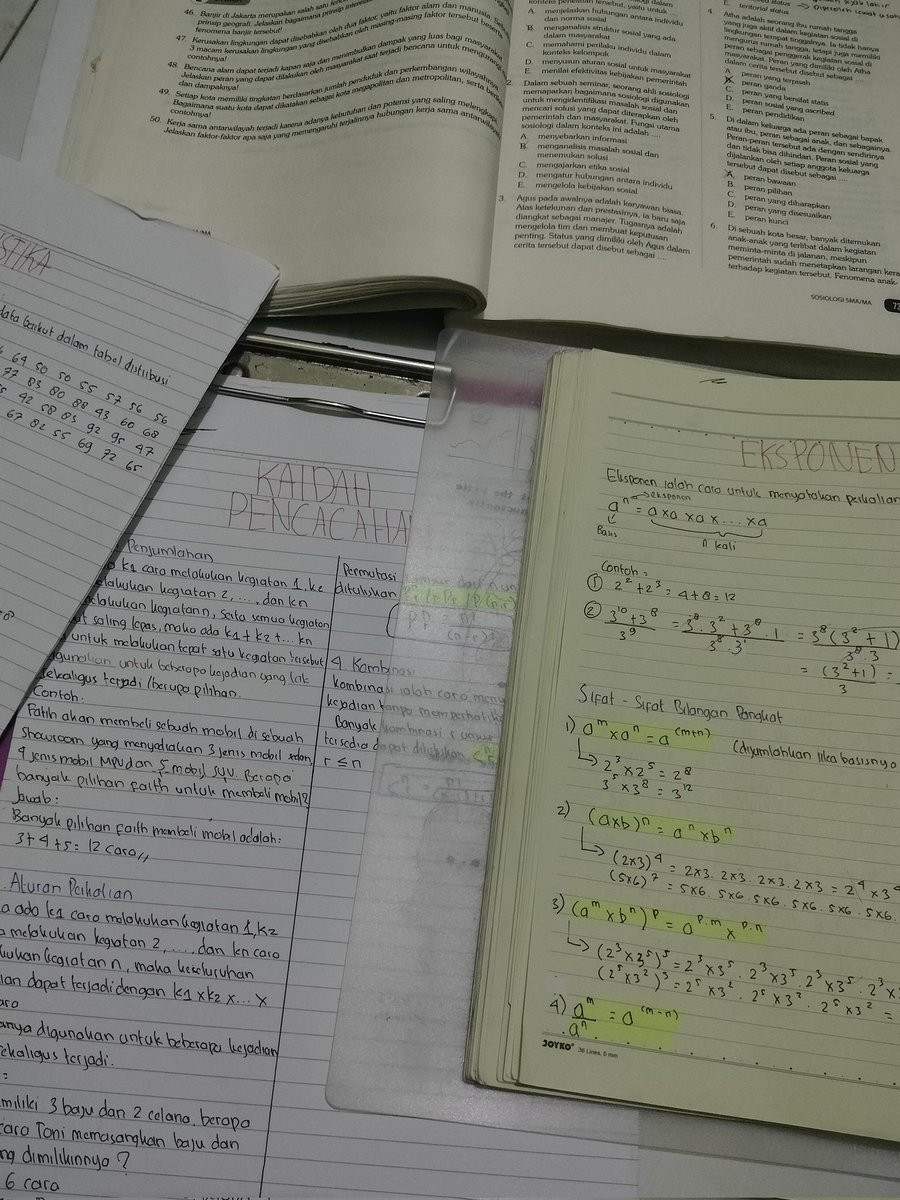 46. Banjir di Jakarta merupakan salah satu
prinsip geografi. Jelaskan bagaimana prinsip
fenomena banjir tersebut!
47. Kerusakan lingkungan dapat disebabkan oleh dua faktor, yaitu faktor alam dan manusia.
3 macam kerusakan lingkungan yang disebabkan oleh masing-masing faktor tersebut
contohnya!
48. Bencana alam dapat terjadi kapan saja dan menimbulkan dampak yang luas bagi masyarakat.
Jelaskan peran yang dapat dilakukan oleh masyarakat saat terjadi bencana untuk
dan dampaknya!
49. Setiap kota memiliki tingkatan berdasarkan jumlah penduduk dan perkembangan wilayahnya.
Bagaimana suatu kota dapat dikatakan sebagai kota megapolitan dan metropolitan, serta
contohnya!
50. Kerja sama antarwilayah terjadi karena adanya kebutuhan dan potensi yang saling
Jelaskan faktor-faktor apa saja yang memengaruhi terjalinnya hubungan kerja sama
konteks penelitian tersebut, yaitu
A. menjelaskan hubungan antara individu
dan norma sosial
B. menganalisis struktur sosial yang ada
dalam masyarakat
C. memahami perilaku individu dalam
konteks kelompok
D. menyusun aturan sosial untuk masyarakat
E. menilai efektivitas kebijakan pemerintah
2. Dalam sebuah seminar, seorang ahli sosiologi
memaparkan bagaimana sosiologi digunakan
untuk mengidentifikasi masalah sosial dan
mencari solusi yang dapat diterapkan oleh
pemerintah dan masyarakat. Fungsi utama
sosiologi dalam konteks ini adalah ....
A. menyebarkan informasi
B. menganalisis masalah sosial dan
menemukan solusi
C. mengajarkan etika sosial
D. mengatur hubungan antara individu
E. mengelola kebijakan sosial
3. Agus pada awalnya adalah karyawan biasa.
Atas ketekunan dan prestasinya, ia baru saja
diangkat sebagai manajer. Tugasnya adalah
mengelola tim dan membuat keputusan
penting. Status yang dimiliki oleh Agus dalam
cerita tersebut dapat disebut sebagai ....
E. teritorial status
4. Atha adalah seorang ibu rumah tangga
yang juga aktif dalam kegiatan sosial di
lingkungan tempat tinggalnya. Ia tidak hanya
mengurus rumah tangga, tetapi juga memiliki
peran sebagai penggerak kegiatan sosial di
masyarakat. Peran yang dimiliki oleh Atha
dalam cerita tersebut disebut sebagai ....
A. peran yang terpisah
B. peran ganda
C. peran yang bersifat statis
D. peran sosial yang ascribed
E. peran pendidikan
5. Di dalam keluarga ada peran sebagai bapak
atau ibu, peran sebagai anak, dan sebagainya.
Peran-peran tersebut ada dengan sendirinya
dan tidak bisa dihindari. Peran sosial yang
dijalankan oleh setiap anggota keluarga
tersebut dapat disebut sebagai ....
A. peran bawaan
B. peran pilihan
C. peran yang diharapkan
D. peran yang disesuaikan
E. peran kunci
6. Di sebuah kota besar, banyak ditemukan
anak-anak yang terlibat dalam kegiatan
meminta-minta di jalanan, meskipun
pemerintah sudah menetapkan larangan
terhadap kegiatan tersebut. Fenomena anak-
SOSIOLOGI SMA/MA
data berikut dalam tabel distribusi
64 50 50 55 57 56 56
77 83 80 88 43 60 68
42 58 83 92 95 47
67 82 55 69 72 65
KAIDAH
PENCACAHA
Penjumlahan
k1 cara melakukan kegiatan 1, k2
melakukan kegiatan 2, ...., dan kn
melakukan kegiatan n, serta semua kegiatan
saling lepas, maka ada k1 + k2 + ... kn
untuk melakukan tepat satu kegiatan tersebut
digunakan untuk beberapa kejadian yang tak
sekaligus terjadi / berupa pilihan.
Contoh:
Fatih akan membeli sebuah mobil di sebuah
showroom yang menyediakan 3 jenis mobil
4 jenis mobil MPU dan 5 mobil SUV. Berapa
banyak pilihan faith untuk membeli mobil?
Jawab:
Banyak pilihan faith membeli mobil adalah:
3 + 4 + 5 = 12 cara,,
Aturan Perkalian
ada k1 cara melakukan kegiatan 1, k2
melakukan kegiatan 2, ...., dan kn cara
melakukan kegiatan n, maka keseluruhan
dapat terjadi dengan k1 x k2 x ... x
digunakan untuk beberapa kejadian
sekaligus terjadi.
memiliki 3 baju dan 2 celana. berapa
cara Toni memasangkan baju dan
yang dimilikinnya ?
6 cara
Permutasi
dituliskan
4. Kombinasi
kombinasi ialah cara
kejadian tanpa
Banyak kombinasi r unsur
tersedia dapat dituliskan
r ≤ n
EKSPONEN
Eksponen ialah cara untuk menyatakan perkalian
aⁿ → eksponen = a x a x a x ... x a
Basis
n kali
Contoh:
① 2² + 2³ = 4 + 8 = 12
② (3¹⁰ + 3⁸) / 3⁹ = (3⁸ . 3² + 3⁸ . 1) / (3⁸ . 3¹) = 3⁸ (3² + 1) / (3⁸ . 3)
= (3² + 1) / 3 =
Sifat - Sifat Bilangan Pangkat
1) aᵐ x aⁿ = a⁽ᵐ⁺ⁿ⁾ (dijumlahkan jika basisnya
↳ 2³ x 2⁵ = 2⁸
3⁵ x 3⁸ = 3¹²
2) (axb)ⁿ = aⁿ x bⁿ
↳ (2x3)⁴ = 2x3. 2x3. 2x3. 2x3 = 2⁴ x 3⁴
(5x6)⁷ = 5x6. 5x6. 5x6. 5x6. 5x6. 5x6.
3) (aᵐ x bⁿ)ᵖ = aᵖ·ᵐ x ᵖ·ⁿ
↳ (2³ x 3⁵)⁵ = 2³ x 3⁵ . 2³ x 3⁵ . 2³ x 3⁵ . 2³ x
(2⁵ x 3²)³ = 2⁵ x 3² . 2⁵ x 3² . 2⁵ x 3² =
4) aᵐ / aⁿ = a⁽ᵐ⁻ⁿ⁾
JOYKO 36 Lines, 6 mm